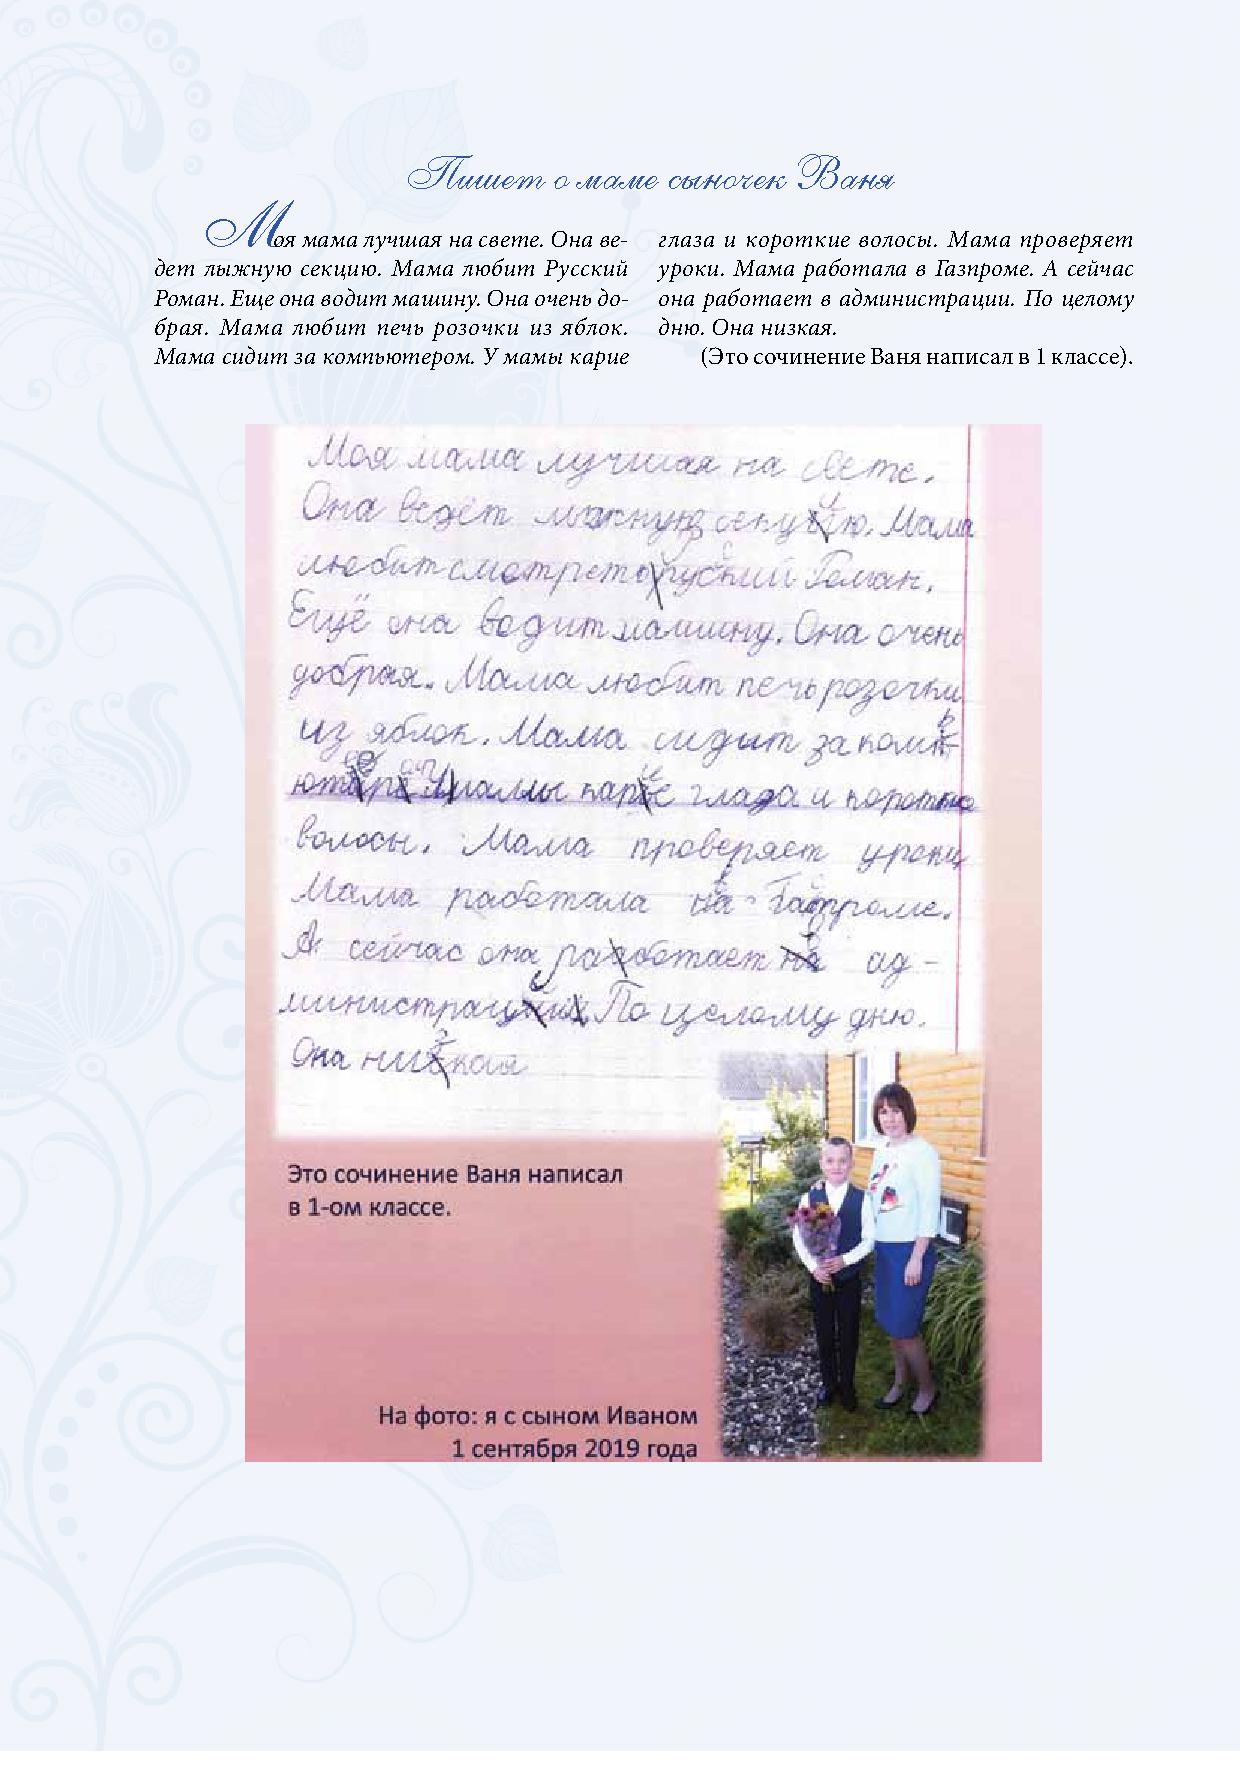 Пишет о маме сыночек Ваня
Моя мама лучшая на свете. Она ве-
дет лыжную секцию. Мама любит Русский
Роман. Еще она водит машину. Она очень до-
брая. Мама любит печь розочки из яблок.
Мама сидит за компьютером. У мамы карие
глаза и короткие волосы. Мама проверяет
уроки. Мама работала в Газпроме. А сейчас
она работает в администрации. По целому
дню. Она низкая.
(Это сочинение Ваня написал в 1 классе).
Моя мама лучшая на свете.
Она ведёт лыжную Мама
любит смотреть Роман.
Ещё она водит машину. Она очень
добрая. Мама любит печь розочки
из яблок. Мама сидит за
мамы глаза и
волосы. Мама проверяет уроки
Мама работала
А сейчас она ад-
По целому дню.
Она
Это сочинение Ваня написал
в 1-ом классе.
На фото: я с сыном Иваном
1 сентября 2019 года